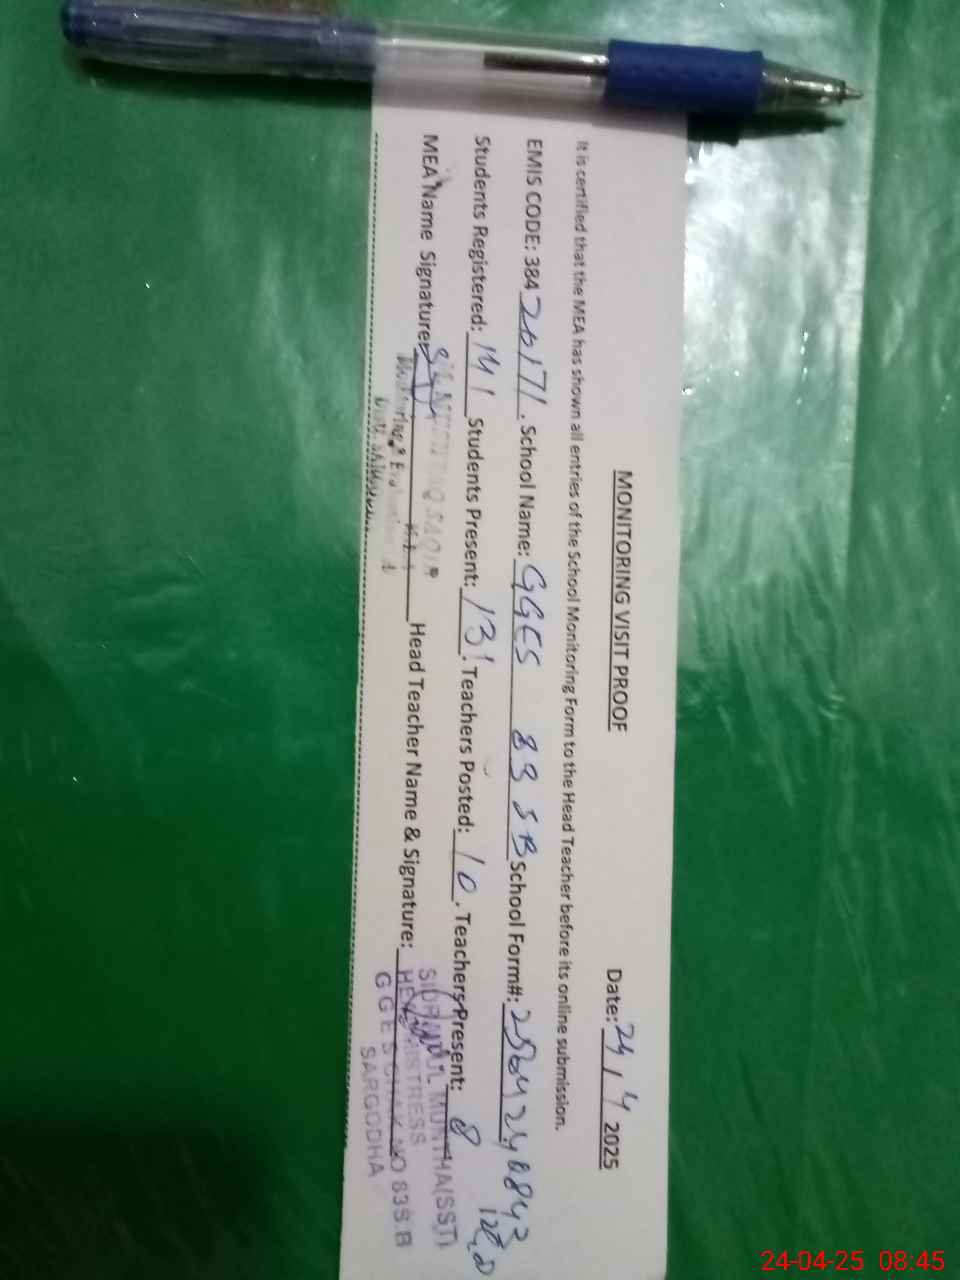 MONITORING VISIT PROOF Date: 24/4 2025
It is certified that the MEA has shown all entries of the School Monitoring Form to the Head Teacher before its online submission.
EMIS CODE: 384 20171. School Name: GGES 83 SB School Form#:
Students Registered: 141 Students Present: 131. Teachers Posted: 10. Teachers Present: 8
MEA Name Signature Head Teacher Name & Signature:
MUNTHA(SST)
HEADMISTRESS
GGES CHAK NO 83S.B
SARGODHA
24-04-25 08:45